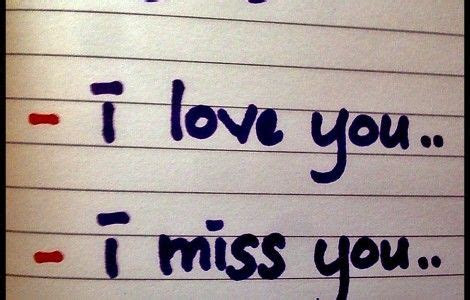 - i love you..
- i miss you..